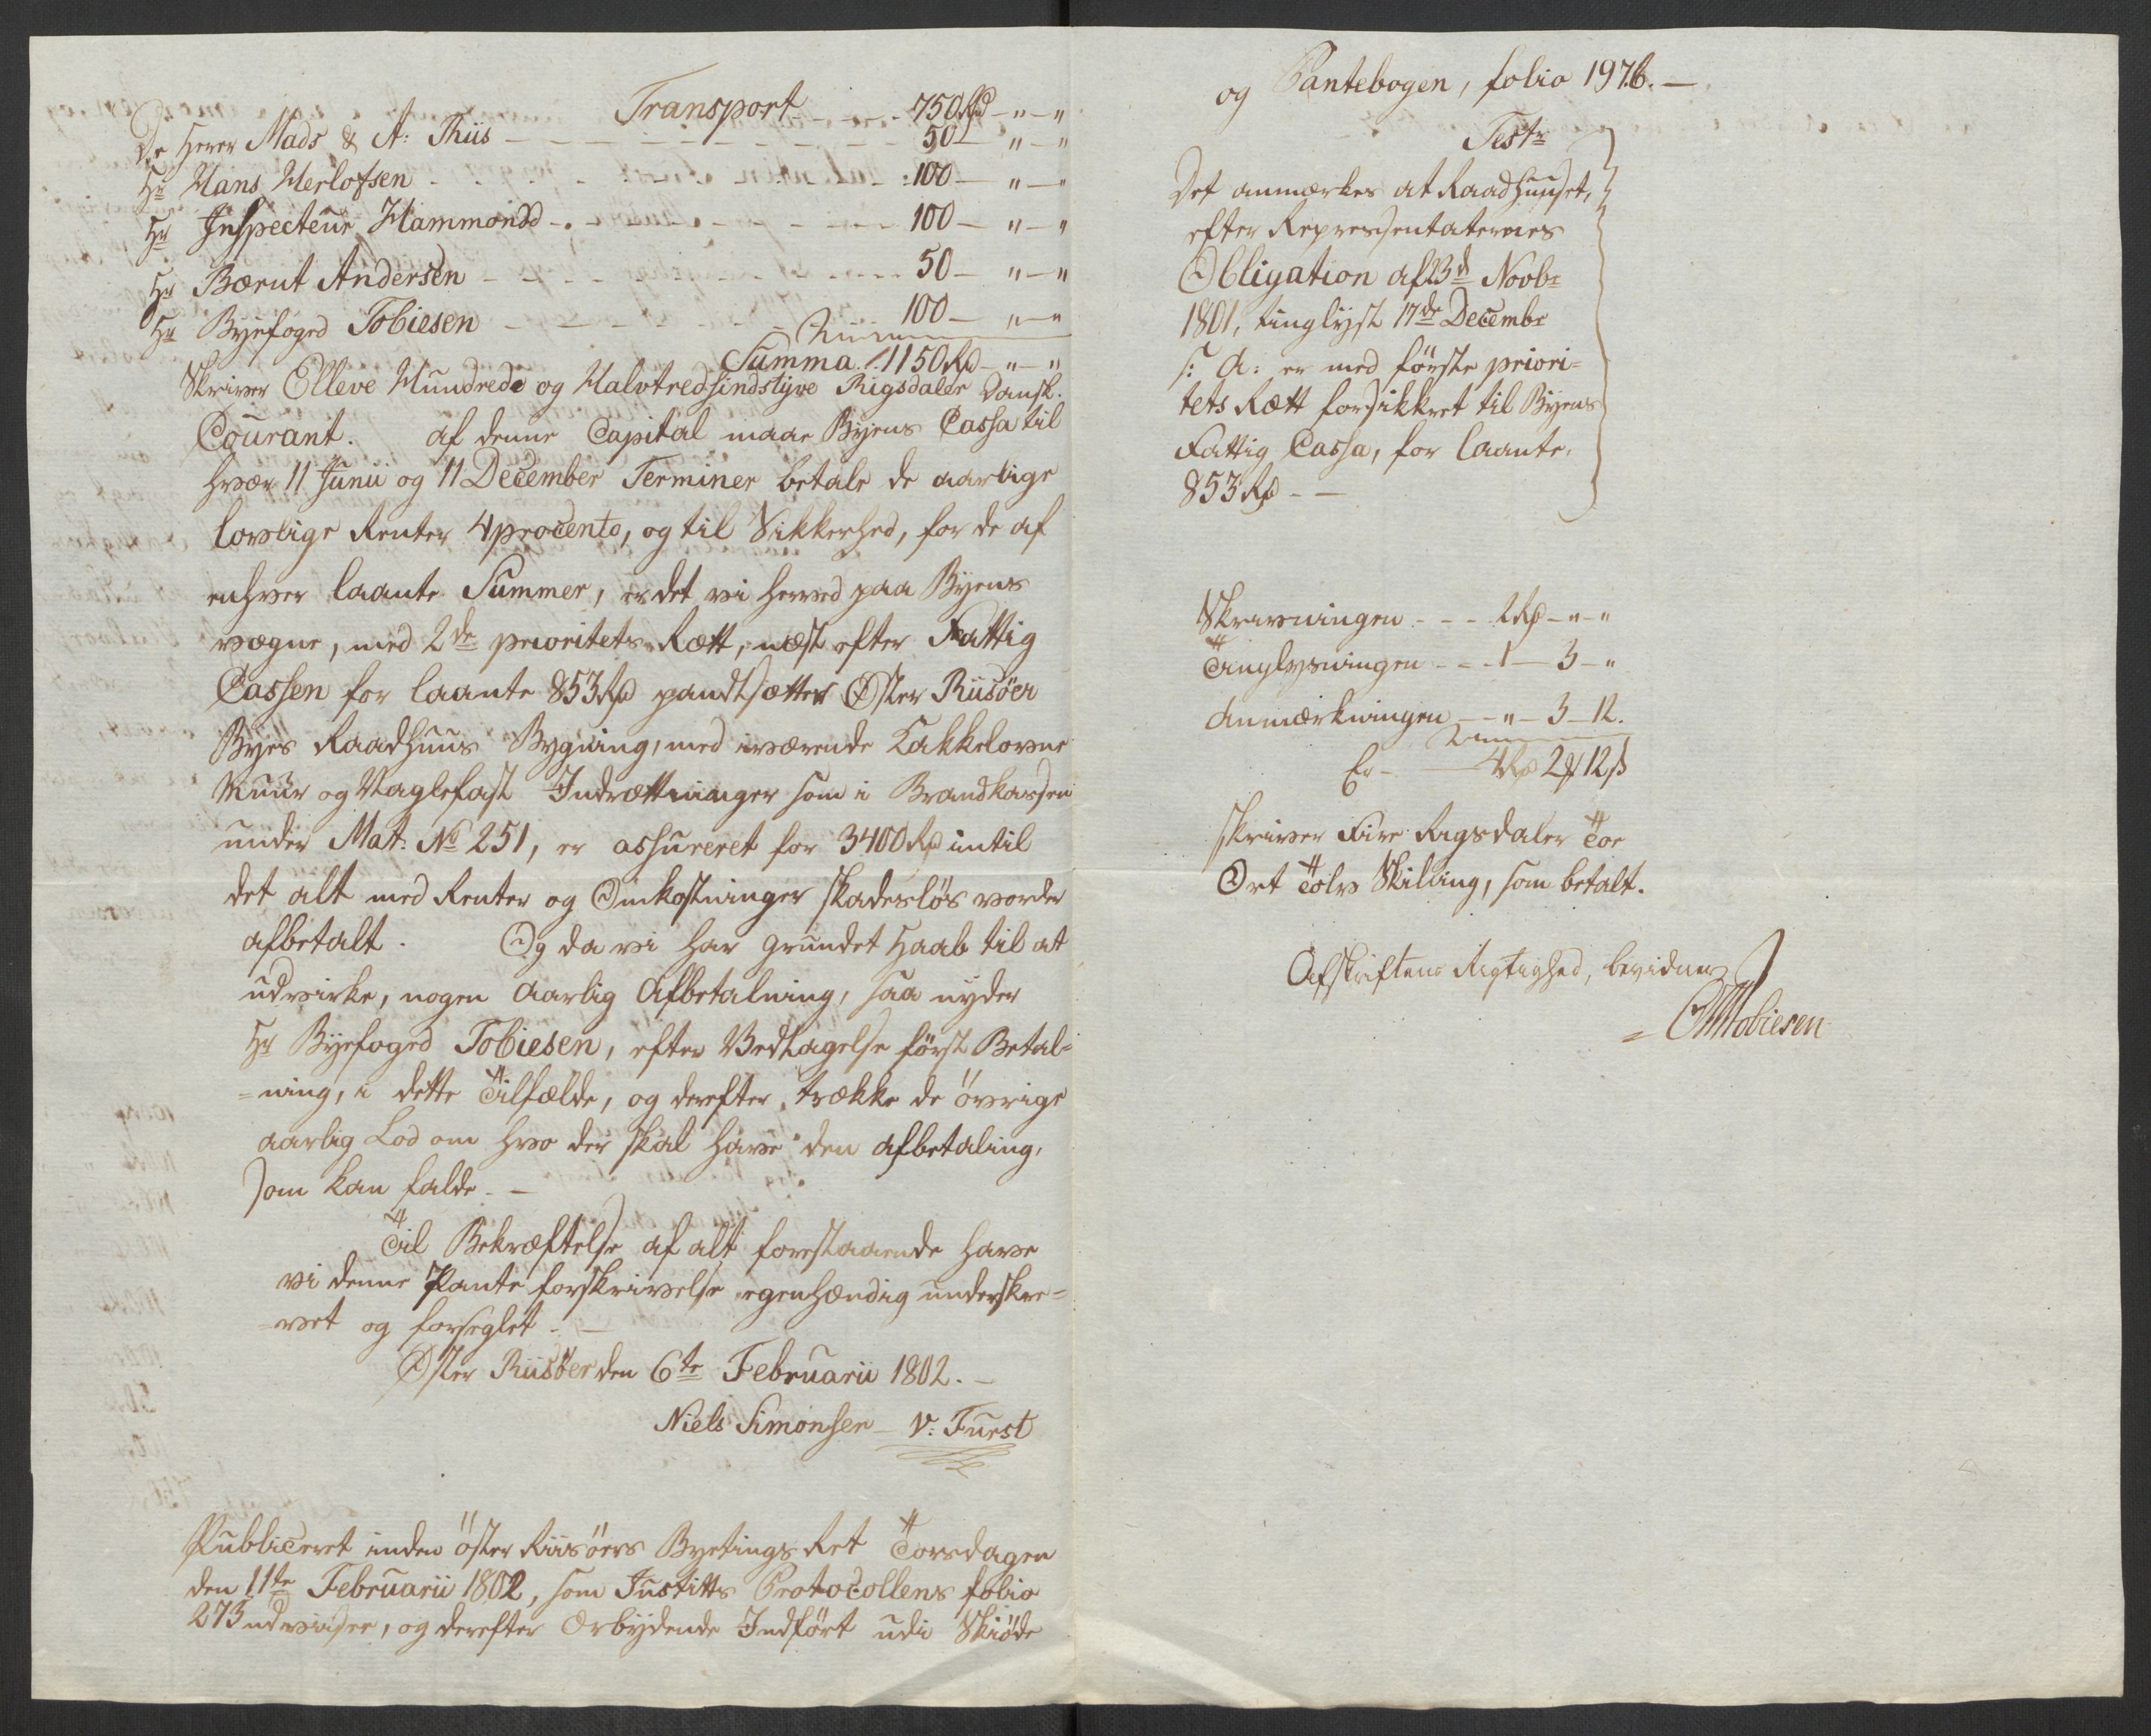 Transport - - - - 750 Rd - " - "
De Herrer Mads & A: Thiis - - - 50 - " - "
Hr Hans Herlofsen - - - 100 - " - "
Hr Inspecteur Hammond - - - 100 - " - "
Hr Bærnt Andersen - - - 50 - " - "
Hr Byefoged Tobiesen - - - 100 - " - "
Summa /: 1150 Rd - " - "
Skriver Elleve Hundrede og Halvtredsindstyve Rigsdaler Dansk.
Courant. af denne Capital maae Byens Cassa til
hver 11 Junii og 11 December Terminer betale de aarlige
lovlige Renter 4 procento, og til Sikkerhed, for de af
enhver laante Summer, er det vi herved paa Byens
vegne, med 2de prioritets Rætt, næst efter Fattig
Cassen for laante 853 Rd pandtsætter Øster Riisöer
Byes Raadhuus Bygning, med iværende Kakkelovne
Muur og Naglefast Indrættninger som i Brandkassen
under Mat: No 251, er assureret for 3400 Rd intil
det alt med Renter og Omkostninger skadeslös vorder
afbetalt. Og da vi har grundet Haab til at
udvirke, nogen Aarlig Afbetalning, saa nyder
Hr Byefoged Tobiesen, efter Vedtagelse först Betal-
-ning, i dette Tilfælde, og derefter, trække de övrige
aarlig Lod om hvo der skal have den afbetaling,
som kan falde. -
Til Bekræftelse af alt forestaaende have
vi denne Pante forskrivelse egenhændig underskre-
-vet og forseglet. -
Øster Riisöer den 6te Februarii 1802. -
Niels Simonsen - v: Fuest
Publiceret inden öster Riisöers Byetings Ret Torsdagen
den 11te Februarii 1802, som Justitts Protocollens folio
273 udviser, og derefter Orbydende Indfört udi Skiöde
og Pantebogen, folio 197.b. -
Testr
Det anmærkes at Raadhuuset,
efter Repressentaternes
Obligation af 23d Novbr
1801, tinglyst 17de Decembr
s: A: er med förste priori-
tets Rætt forsikkret til Byens
Fattig Cassa, for laante,
853 Rd - -
Skrivningen - - - 2 Rd - " - "
Tinglysningen - - 1 - 3 - "
Anmærkningen - - " - 3 - 12.
Er - - 4 Rd 2 # 12 s
skriver Fire Rigsdaler Toe
Ort Tolv Skilling, som betalt.
Afskriftens Rigtighed, bevidner
= Tobiesen